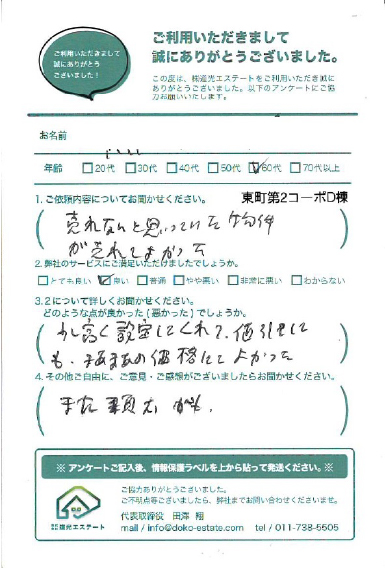 ご利用いただきまして
誠にありがとう
ございました!
ご利用いただきまして
誠にありがとうございました。
この度は、㈱道光エステートをご利用いただき誠に
ありがとうございました。以下のアンケートにご協
力お願いいたします。
お名前
年齢 □20代 □30代 □40代 □50代 ☑60代 □70代以上
1.ご依頼内容についてお聞かせください。 東町第2コーポD棟
売れないと思っていた物件
が売れてよかった
2.弊社のサービスにご満足いただけましたでしょうか。
□とても良い ☑良い □普通 □やや悪い □非常に悪い □わからない
3.2について詳しくお聞かせください。
どのような点が良かった(悪かった)でしょうか。
少し高く設定してくれて、値引きして
も、まあまあの価格にてよかった
4.その他ご自由に、ご意見・ご感想がございましたらお聞かせください。
また 頼むかも。
※ アンケートご記入後、情報保護ラベルを上から貼って発送ください。※
ご協力ありがとうございました。
ご不明点等ございましたら、弊社までお問い合わせくださいませ。
代表取締役 田澤 翔
株式会社 道光エステート mail / info@doko-estate.com tel / 011-738-5505